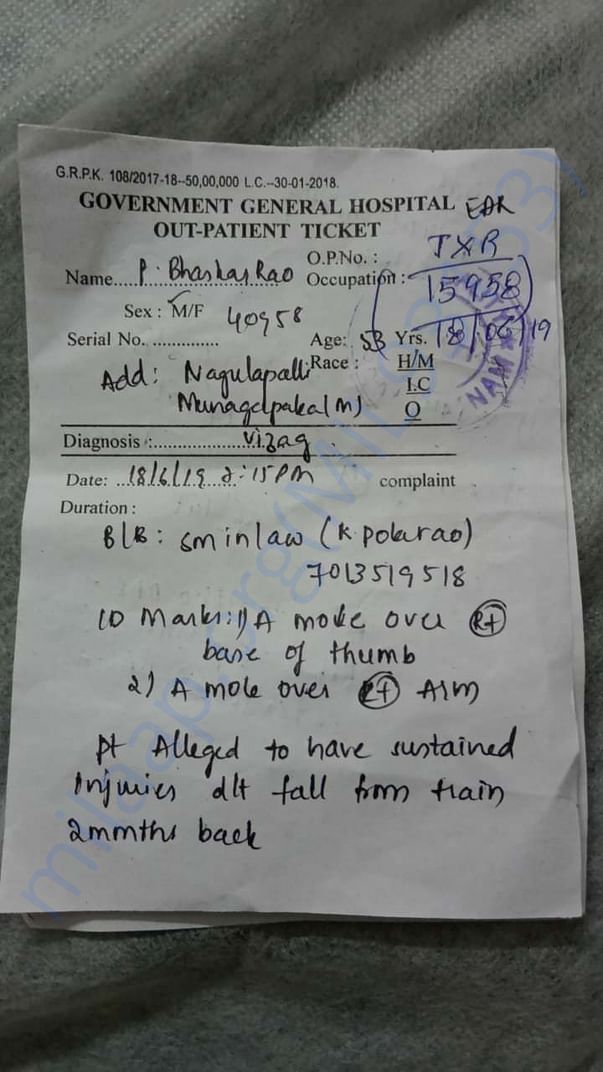 G.R.P.K. 108/2017-18--50,00,000 L.C.--30-01-2018.
GOVERNMENT GENERAL HOSPITAL EAR
OUT-PATIENT TICKET
O.P.No. : TXR
Name.... P. Bhaskar Rao Occupation : 15958
Sex : M/F 40958
Serial No. .............. Age: 53 Yrs. 18/06/19
Add: Nagulapalli Race : H/M
I.C
Munagapaka (m) O
Diagnosis :.................... Vizag .
Date: ..18/6/19 2:15PM complaint
Duration :
B/B: sminlaw (K. polarao)
7013519518
ID Marks: 1) A mole over Rt
base of thumb
2) A mole over Rt Arm
Pt Alleged to have sustained
Injuries d/t fall from train
2 months back
milaap.org